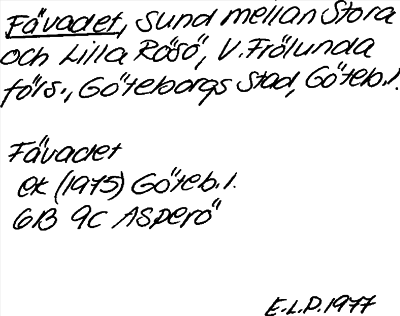 Fåvadet, sund mellan Stora
och Lilla Rösö, V. Frölunda
förs., Göteborgs Stad, Göteb. l.
Fåvadet
ek (1975) Göteb. l.
6B 9c Asperö
E.L.P. 1977